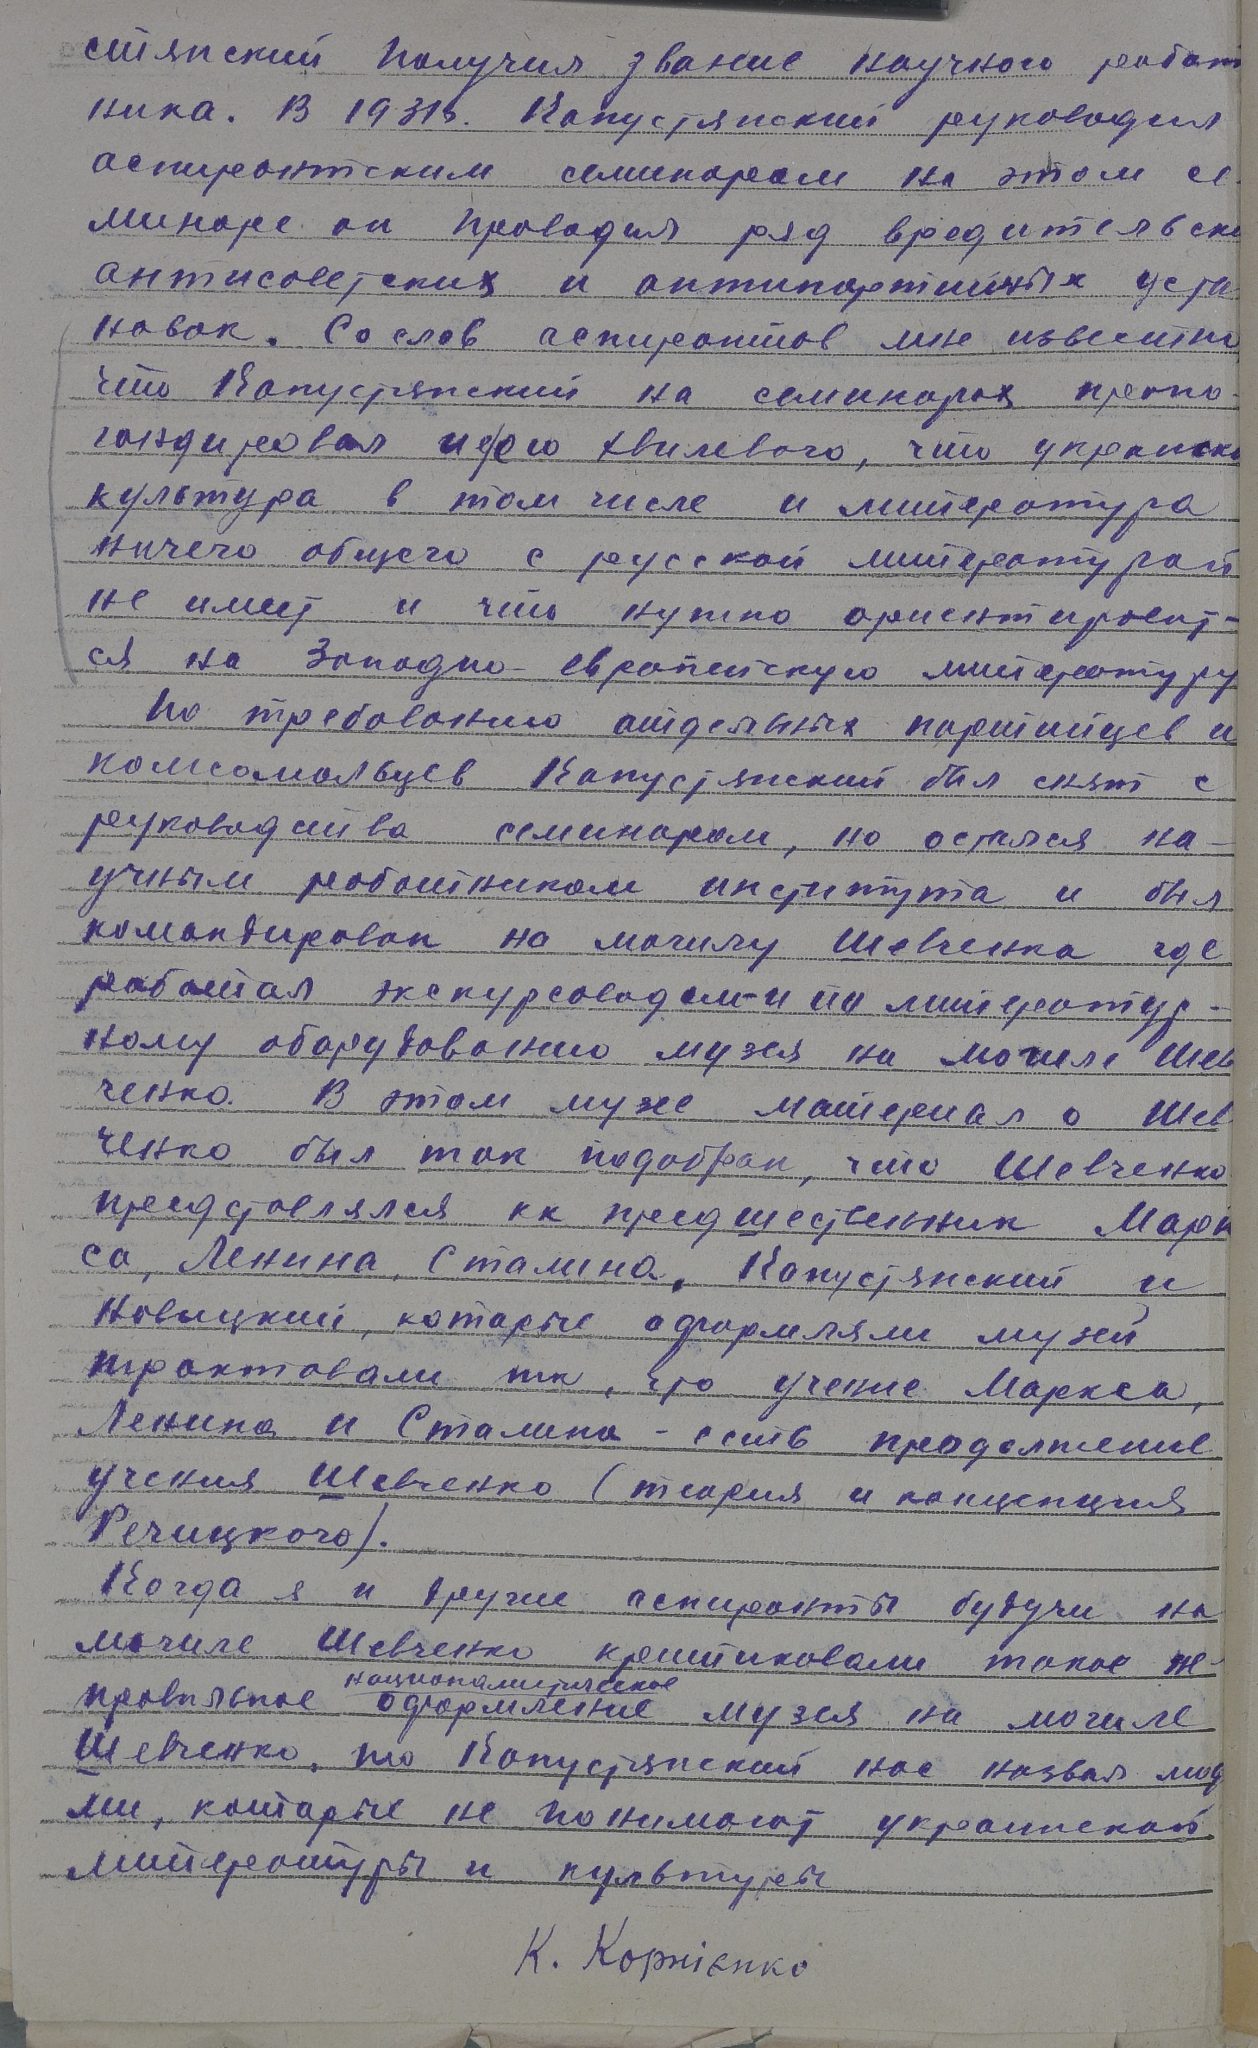 стянский получил звание научного работ
ника. В 1931г. Капустянский руководил
аспирантским семинаром на этом се-
минаре он проводил ряд вредительски
антисоветских и антипартийных уста
новок. Со слов аспирантов мне известно,
что Капустянский на семинарах пропа-
гандировал идею Хвилевого, что украинска
культура в том числе и литература
ничего общего с русской литературой
не имеет и что нужно ориентироват-
ся на Западно-европейскую литературу
По требованию отдельных партийцев и
комсомольцев Капустянский был снят с
руководства семинаром, но остался на-
учным работником института и был
командирован на могилу Шевченка где
работал экскурсоводом и по литератур-
ному оборудованию музея на могиле Шев
ченко. В этом музее материал о Шев
ченко был так подобран, что Шевченко
представлялся как предшественник Марк
са, Ленина, Сталина. Капустянский и
Новицкий, которые оформляли музей
трактовали так, что учение Маркса,
Ленина и Сталина - есть продолжение
учения Шевченко (теория и концепция
Речицкого).
Когда я и другие аспиранты будучи на
могиле Шевченко критиковали такое не-
правильное националистическое оформление музея на могиле
Шевченко, то Капустянский нас назвал людь
ми, которые не понимают украинской
литературы и культуры
К. Корнієнко